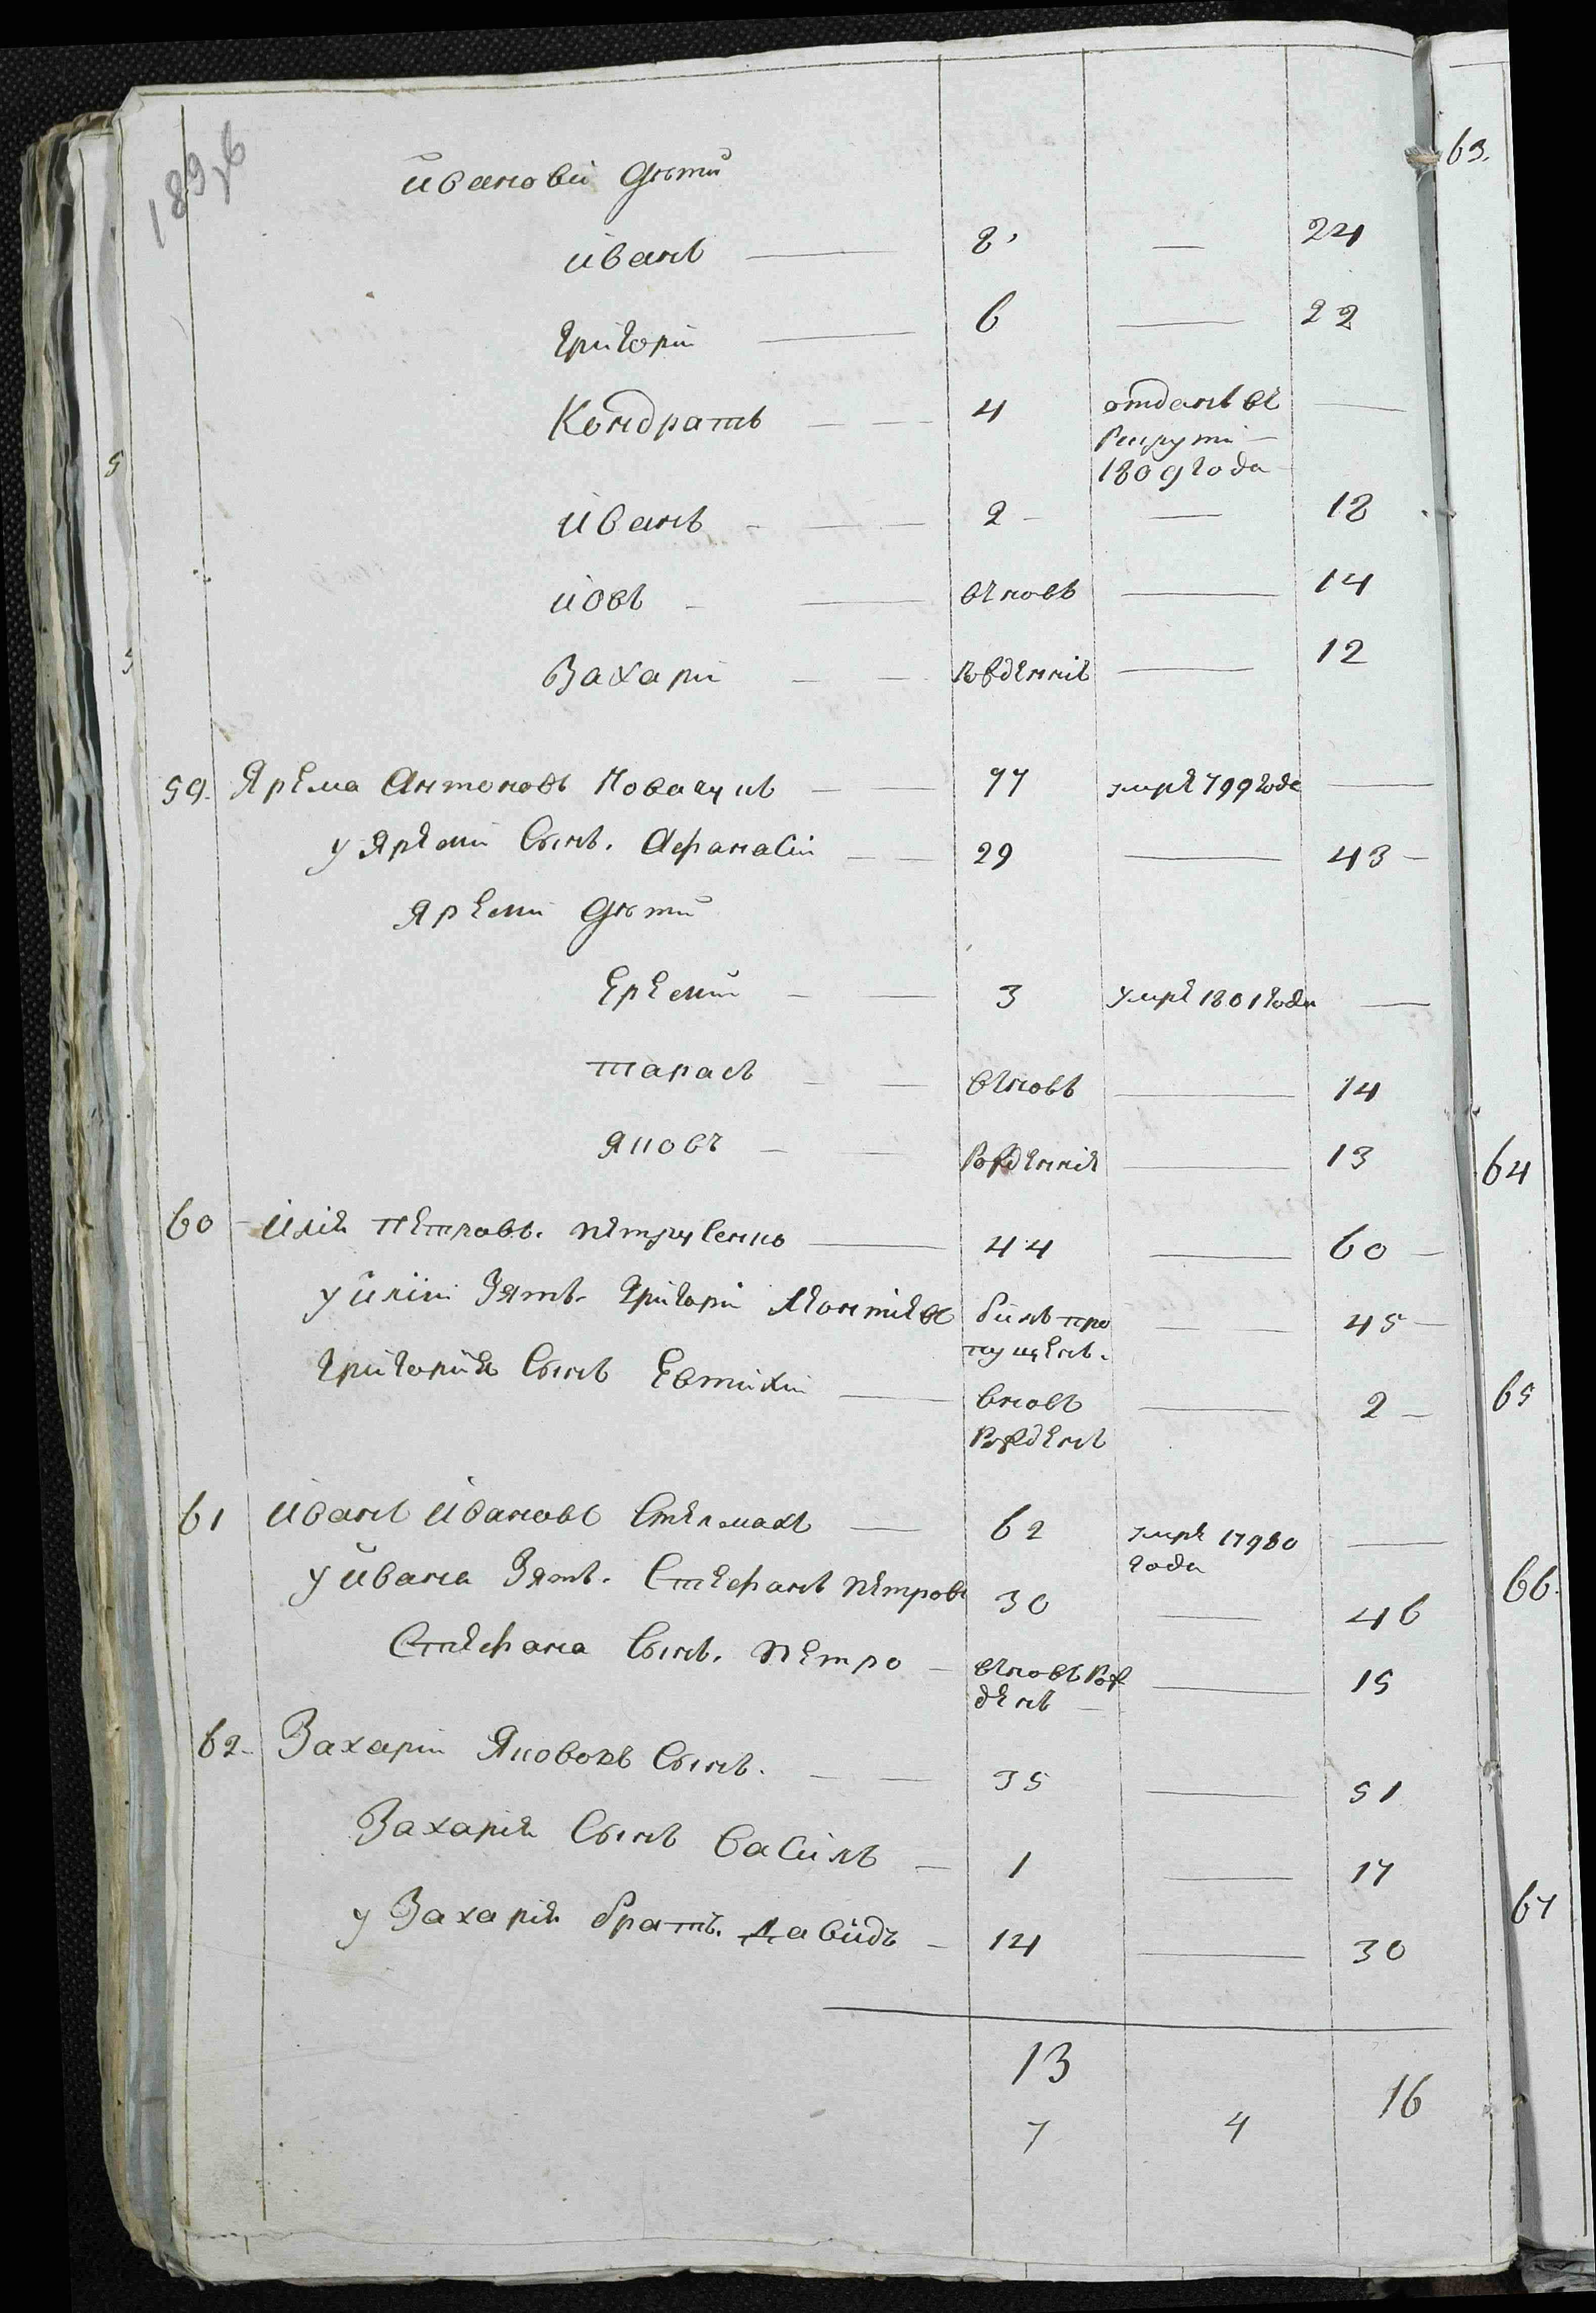 189,об
Ивановы дѣти
Иванъ — 8 — 24
Григорій — 6 — 22
Кондратъ — 4 отданъ въ —
рекруты
1809 года
Иванъ — 2 — 18
Іовъ — вновь — 14
Захарій — рожденніе — 12
59. Ярема Антоновъ — 77 умре 799 года —
у Яремы сынъ. Афанасій — 29 — 43
Яремы дѣти
Еремій — 3 умре 1801 года —
Тарасъ — вновь — 14
Яковъ — рожденніе — 13
60 Илія Петровъ. — 44 — 60
у Иліи зять. Григорій Леонтіевъ билъ про — 45
пущенъ.
Григорія сынъ Евтихій — вновь — 2
рожденъ
61 Иванъ Ивановъ Стелмахъ — 62 умре 17980 —
года
у Ивана зять. Стефанъ Петровъ 30 — 46
Стефана сынъ. Петро — вновь рож — 15
денъ
62. Захарій Якововъ сынъ. — 35 — 51
Захарія сынъ Василь — 1 — 17
у Захарія братъ. Давидъ — 14 — 30
13
16
7 4
63.
64
65
66.
67